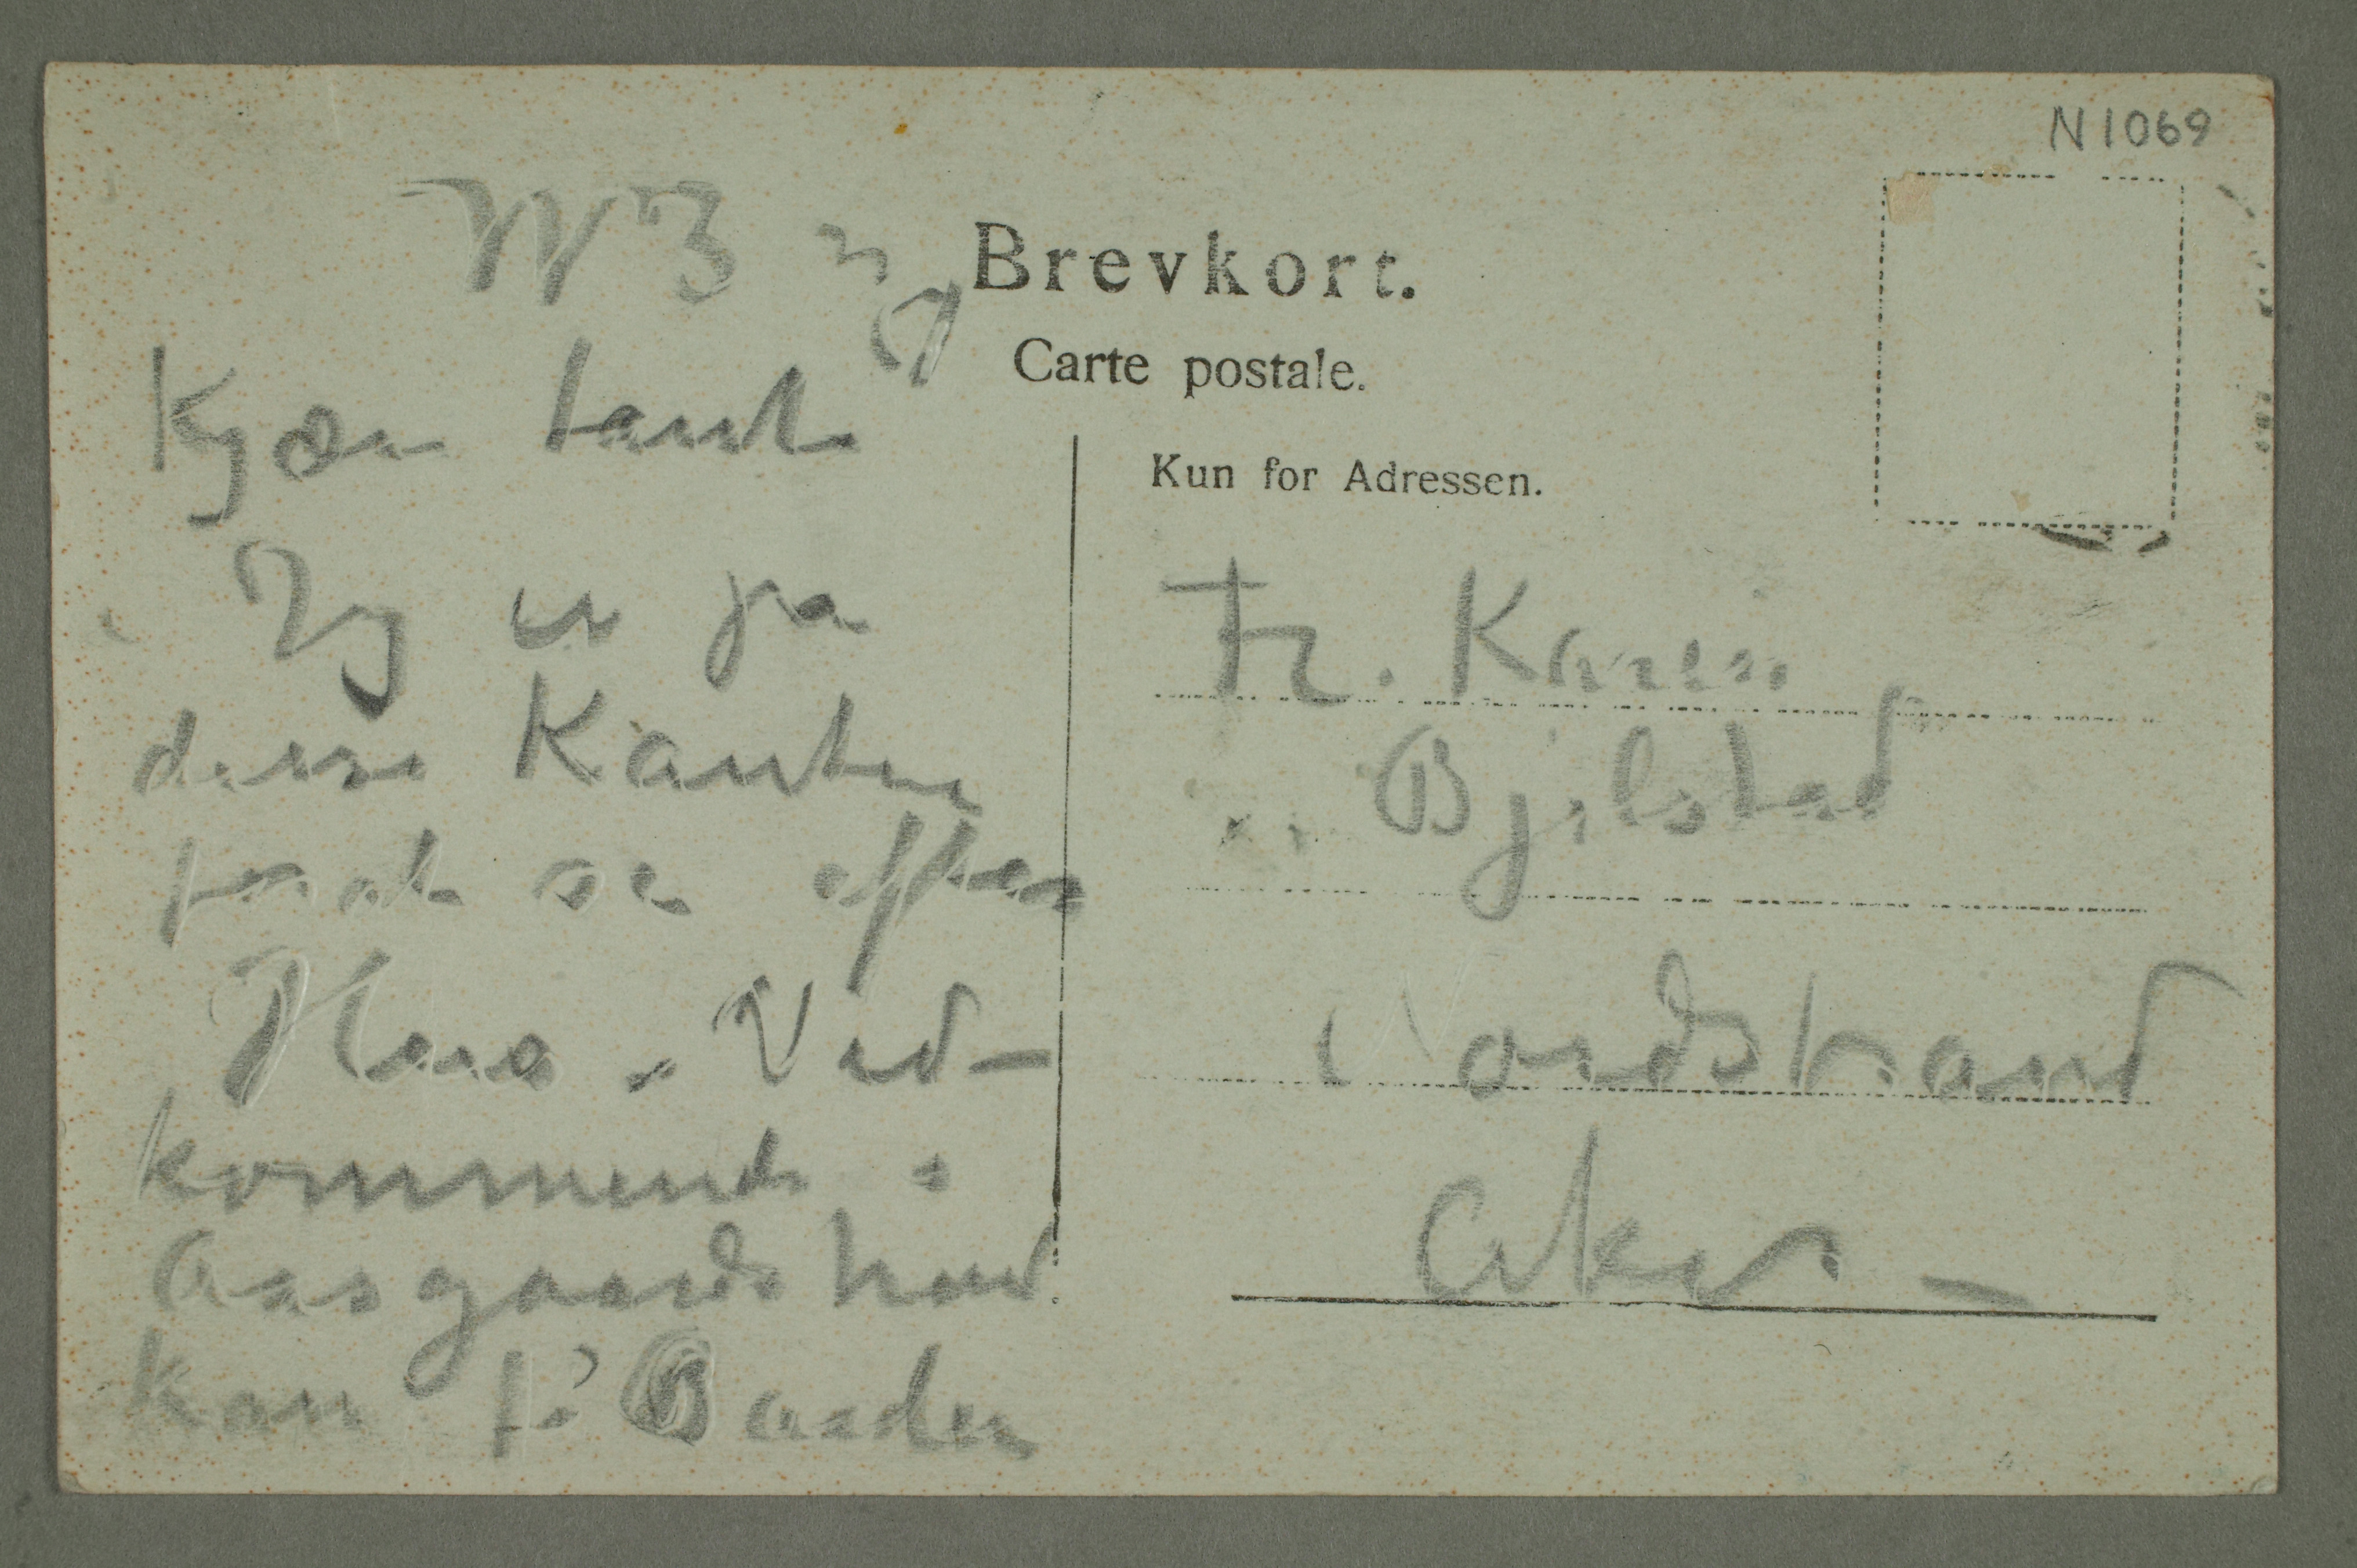 N 1069
Brevkort.
Carte postale.
Kun for Adressen.
Kjære tante
Jeg er paa
disse Kanter
for at se efter
Huse. Ved-
kommende i
Aasgaardstrand
kan få Baaden
Fr. Karen
Bjølstad
Nordstrand
Aker –